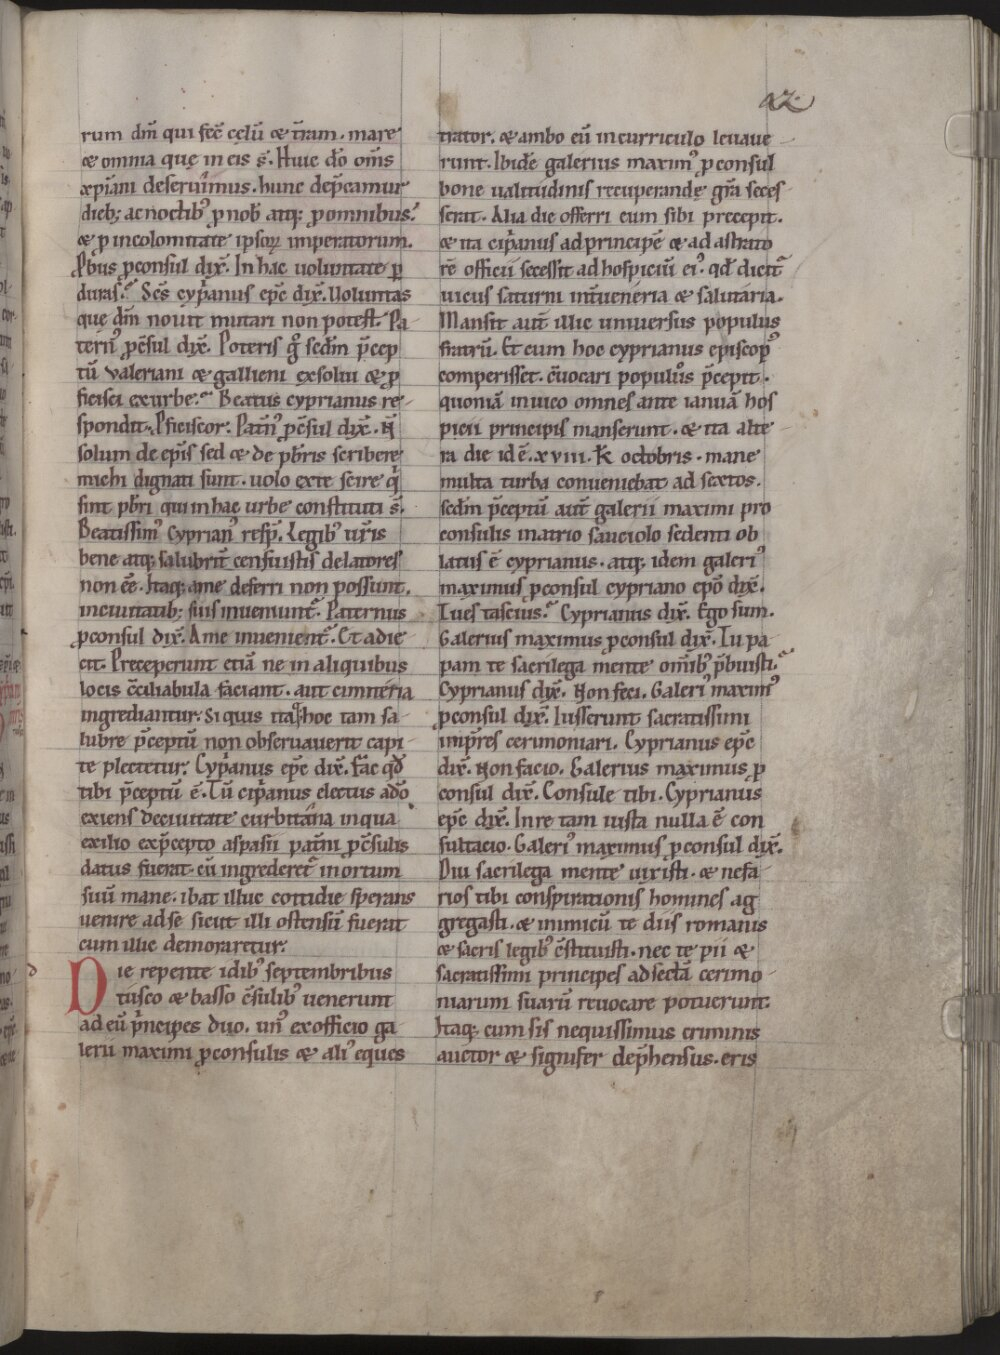 az
rum dm̄ qui fec̄ cęlū & t̄ram. mare
& omnia quę in eis s̄. Huic dō om̄s
xp̄iani deseruimus. hunc dep̄camur
dieb; ac noctib᾽ ꝓ nob᾽ atq; ꝓ omnibus.
& ꝓ incolomitate ipsoꝝ imperatorum.
Pb̄us ꝓconsul dix̄. In hac uoluntate ꝑ
duras? Sc̄s cyp̄anus ep̄c dix̄. Uoluntas
que dm̄ nouit mutari non potest. Pa
tern᾽ ꝓc̄sul dix̄. Poteris g̊ sedm̄ p̄cep
tū valeriani & gallieni exsoltu & ꝓ
ficisci ex urbe? Beatus cyprianus re-
spondit. Ꝓficiscor. Pat̄n᾽ ꝓc̄sul dix̄. N̄
solum de ep̄is sed & de pb̄ris scribere
michi dignati sunt. uolo ex te scire q̄
sint pb̄ri qui in hac urbe constituti s̄.
Beatissim᾽ Cyprian᾽ resp̄. Legib᾽ ur̄is
bene atq; salubrit̄ censuistis delatores
non eē. Itaq; a me deferri non possunt.
in ciuitatib; suis inueniunt̄. Paternus
ꝓconsul dix̄. A me inuenient̄. Et adie
cit. Preceperunt etiā ne in aliquibus
locis c̄ciliabula faciant. aut cimiteria
ingrediantur. Si quis itaq; hoc tam sa-
lubre p̄ceptū non obseruauerit capi-
te plectetur. Cyp̄anus ep̄c dix̄. Fac qđ
tibi p̄ceptū ē. Tū cip̄anus electus a dō
exiens de ciuitate curbitana in qua
exilio ex p̄cepto aspasii pat̄ni ꝓc̄sulis
datus fuerat. cū ingrederet̄ in ortum
suū mane. ibat illuc cottidie sperans
uenire ad se sicut illi ostensū fuerat
cum illic demoraretur.
Die repente idib᾽ septembribus
tusco & basso c̄sulib᾽ uenerunt
ad eū p̄ncipes duo. un᾽ ex officio ga
lerii maximi ꝓconsulis & ali᾽ eques
trator. & ambo eū in curriculo leuaue-
runt. Ibidē galerius maxim᾽ ꝓconsul
bone ualitudinis recuperandę gr̄a seces-
serat. Alia die offerri eum sibi precepit.
& ita cip̄anus ad principē & ad astrato
rē officii secessit ad hospiciū ei᾽ qđ dicit̄
uicus saturni int̄ ueneria & salutaria.
Mansit aut̄ illic uniuersus populus
fratrū. Et cum hoc cyprianus episcop᾽
comperisset. c̄uocari populos p̄cepit.
quoniā in uico omnes ante ianuā hos
picii principis manserunt. & ita alte-
ra die id ē. xviii. k̄ octobris. mane
multa turba conueniebat ad sextos.
sedm̄ p̄ceptū aut̄ galerii maximi pro
consulis in atrio sauciolo sedenti ob
latus ē cyprianus. atq; idem galeri᾽
maximus ꝓconsul cypriano ep̄o dix̄.
Tu es tascius? Cyprianus dix̄. Ego sum.
Galerius maximus ꝓconsul dix̄. Tu pa-
pam te sacrilega mente om̄ib᾽ p̄buisti?
Cyprianus dix̄. Non feci. Galeri᾽ maxim᾽
ꝓconsul dix̄. Iusserunt sacratissimi
imp̄res cerimoniari. Cyprianus ep̄c
dix̄. Non facio. Galerius maximus ꝓ
consul dix̄. Consule tibi. Cyprianus
ep̄c dix̄. In re tam iusta nulla ē con
sultacio. Galeri᾽ maximus ꝓconsul dix̄.
Diu sacrilega mente uixisti. & nefa-
rios tibi conspirationis homines ag
gregasti. & inimicū te diis romanis
& sacris legib᾽ c̄stituisti. nec te pii &
sacratissimi principes ad sectā cerimo-
niarum suarū reuocare potuerunt.
Itaq; cum sis nequissimus criminis
auctor & signifer dep̄hensus. eris